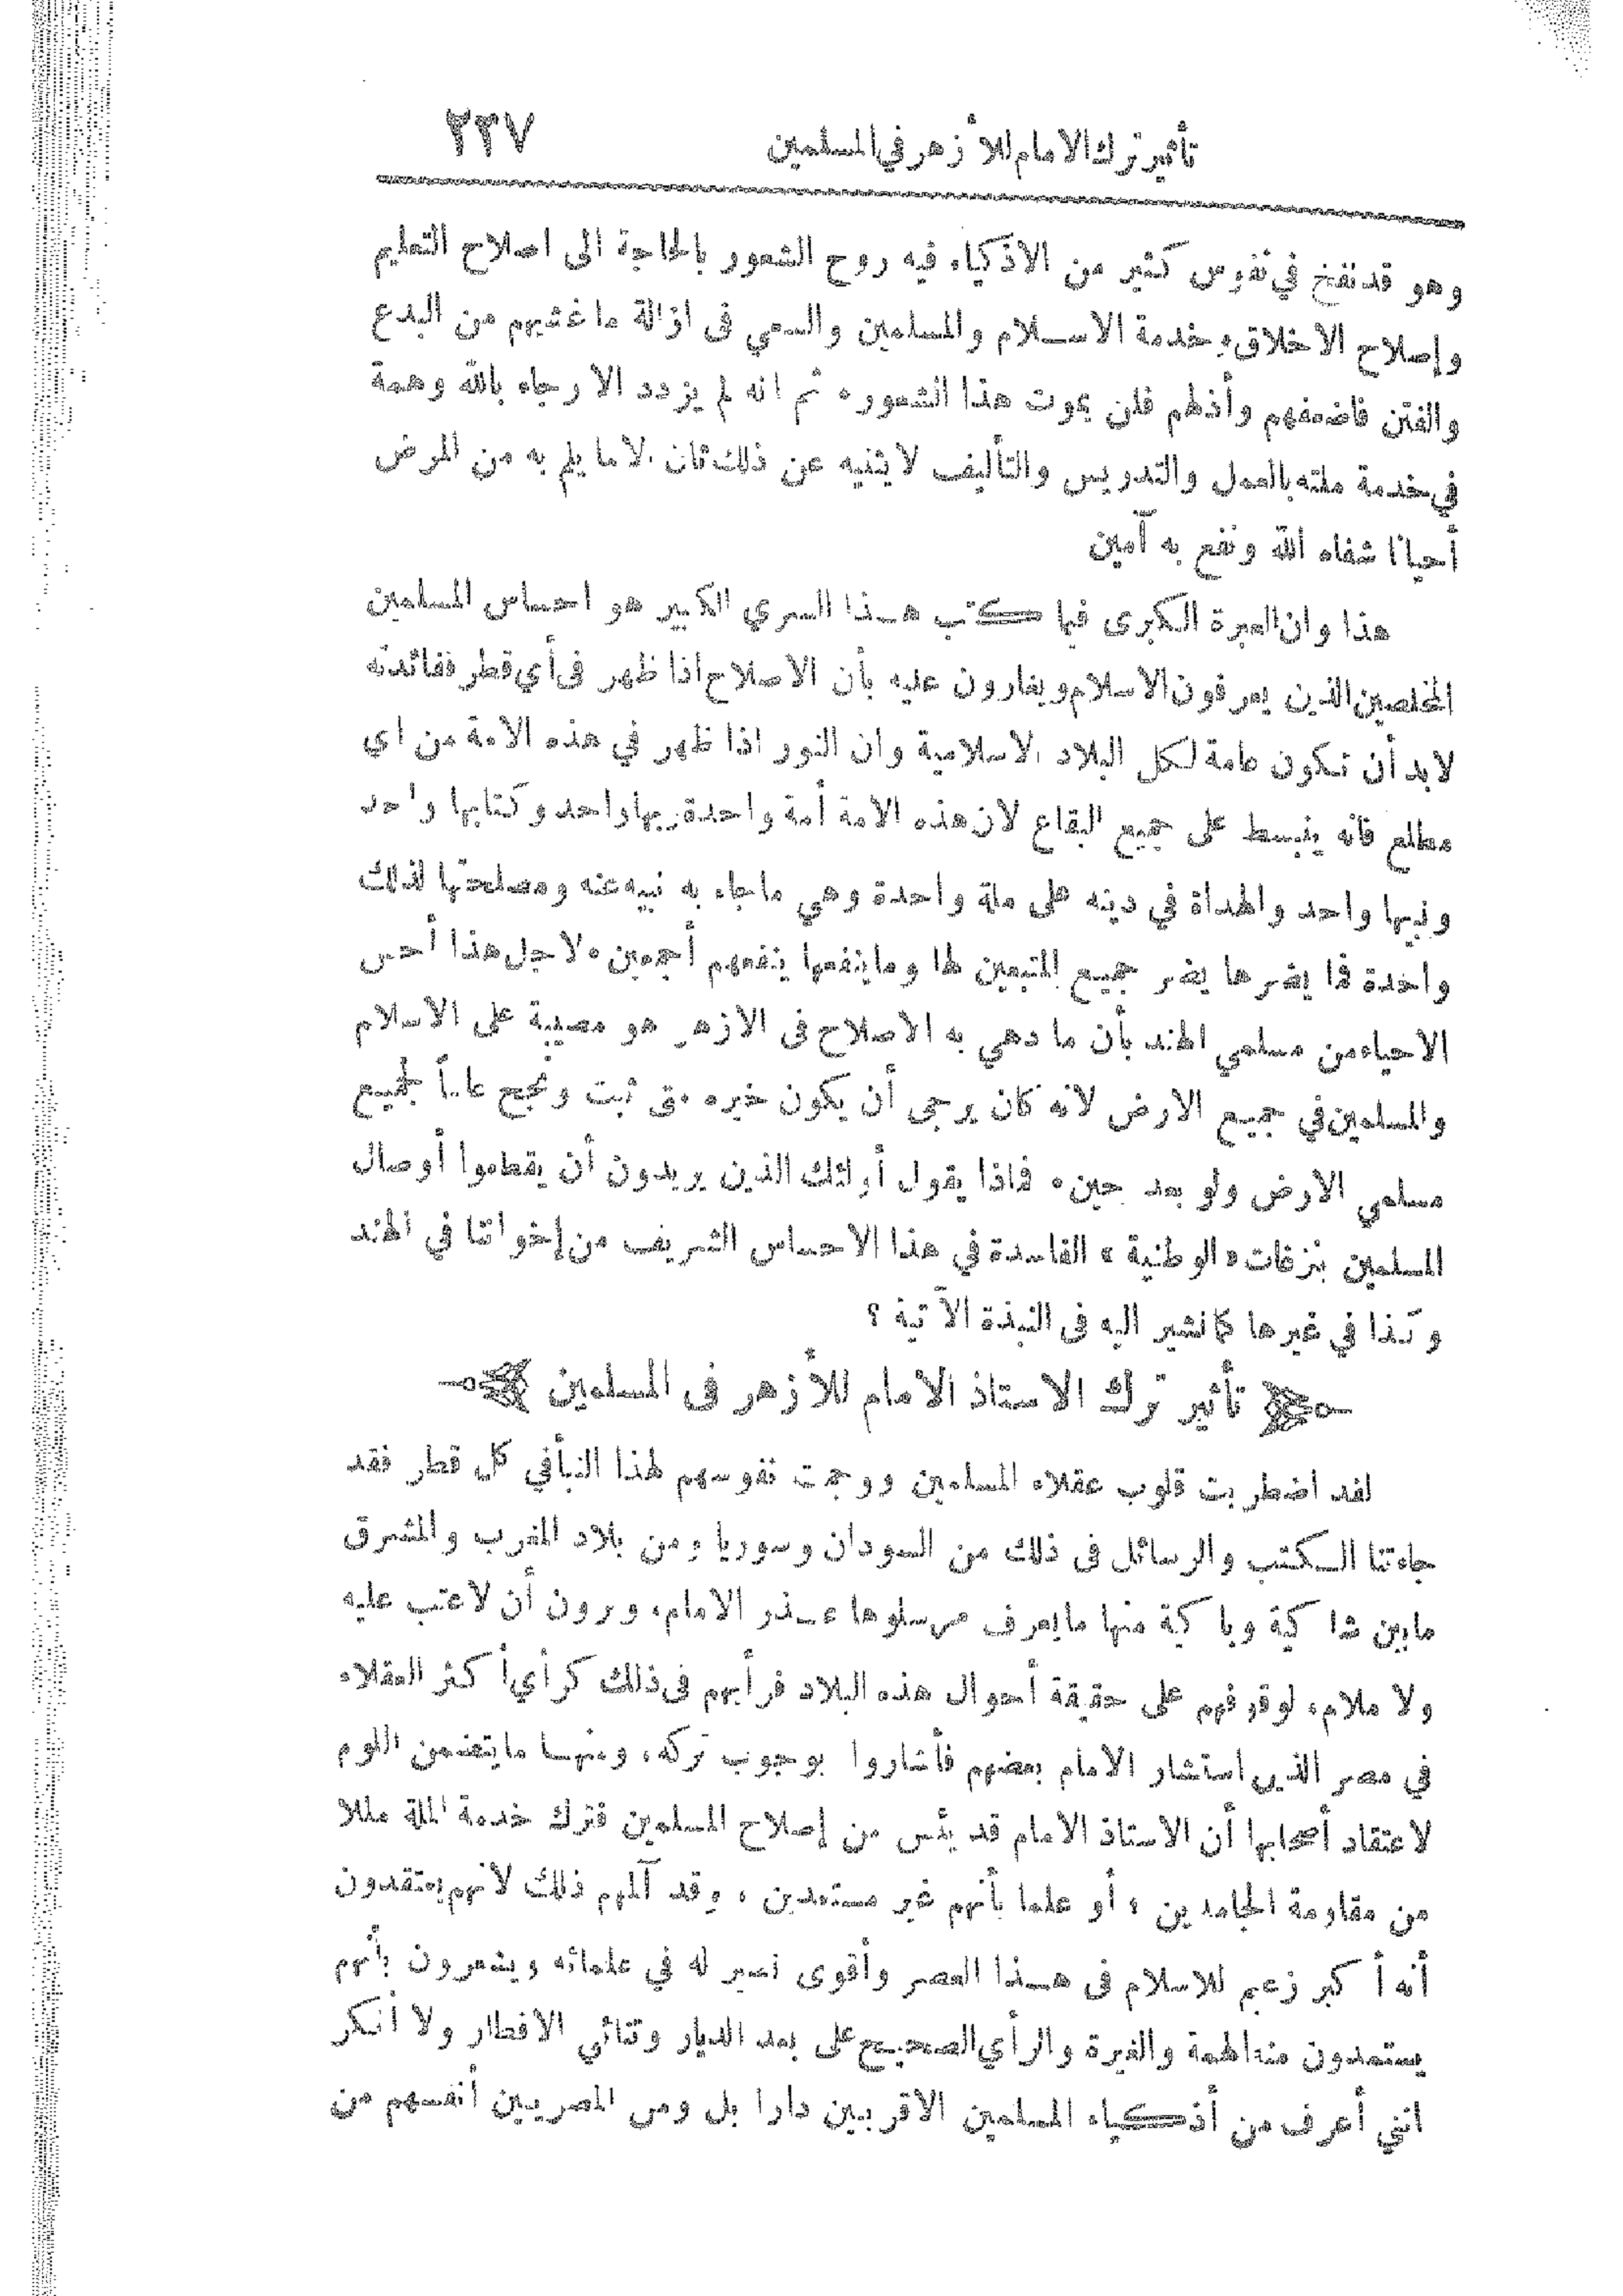 تأثير ترك الامام للأزهر في المسلمين ٢٣٧
وهو قد نفخ في نفوس كثير من الاذكياء فيه روح الشعور بالحاجة الى اصلاح التعليم
وإصلاح الاخلاق وخدمة الاسلام والمسلمين والسعي فى ازالة ما غشيهم من البدع
والفتن فاضعفهم وأذلهم فلن يموت هذا الشعور، ثم انه لم يزدد الا رجاء بالله وهمة
في خدمة ملته بالعمل والتدريس والتأليف لا يثنيه عن ذلك ثان الا ما يلم به من المرض
أحيانا شفاه الله ونفع به آمين
هذا وان العبرة الكبرى فيما كتب هذا السري الكبير هو احساس المسلمين
المخلصين الذين يعرفون الاسلام ويغارون عليه بأن الاصلاح اذا ظهر فى أي قطر ففائدته
لابد أن تكون عامة لكل البلاد الاسلامية وان النور اذا ظهر في هذه الامة من اي
مطلع فانه ينبسط على جميع البقاع لان هذه الامة أمة واحدة ربها واحد وكتابها واحد
ونبيها واحد والهداة في دينه على ملة واحدة وهي ما جاء به نبيه عنه ومصلحتها لذلك
واحدة فما يضرها يضر جميع المتبعين لها وما ينفعها ينفعهم أجمعين، لاجل هذا أحس
الاحياء من مسلمي الهند بأن ما دهي به الاصلاح فى الازهر هو مصيبة على الاسلام
والمسلمين في جميع الارض لانه كان يرجى أن يكون خيره متى ثبت ونجح عاماً لجميع
مسلمي الارض ولو بعد حين، فماذا يقول أولئك الذين يريدون أن يقطعوا أوصال
المسلمين بنزغات «الوطنية» الفاسدة في هذا الاحساس الشريف من إخواننا في الهند
وكذا في غيرها كما نشير اليه فى النبذة الآتية ؟
تأثير ترك الاستاذ الامام للأزهر فى المسلمين
لقد اضطربت قلوب عقلاء المسلمين ووجمت نفوسهم لهذا النبأ في كل قطر فقد
جاءتنا الكتب والرسائل فى ذلك من السودان وسوريا ومن بلاد المغرب والمشرق
مابين شاكية وباكية منها ما يعرف مرسلوها عذر الامام، ويرون أن لا عتب عليه
ولا ملام، لوقوفهم على حقيقة أحوال هذه البلاد فرأيهم فى ذلك كرأي أكثر العقلاء
في مصر الذين استشار الامام بعضهم فأشاروا بوجوب تركه، ومنها ما يتضمن اللوم
لاعتقاد أصحابها أن الاستاذ الامام قد يئس من إصلاح المسلمين فترك خدمة الملة مللا
من مقاومة الجامدين ، أو علما بأنهم غير مستعدين ، وقد آلمهم ذلك لانهم يعتقدون
أنه أكبر زعيم للاسلام فى هذا العصر وأقوى نصير له في علمائه ويشعرون بأنهم
يستمدون منه الهمة والغيرة والرأي الصحيح على بعد الديار وتنائي الاقطار ولا أنكر
انني أعرف من أذكياء المسلمين الاقربين دارا بل ومن المصريين أنفسهم من